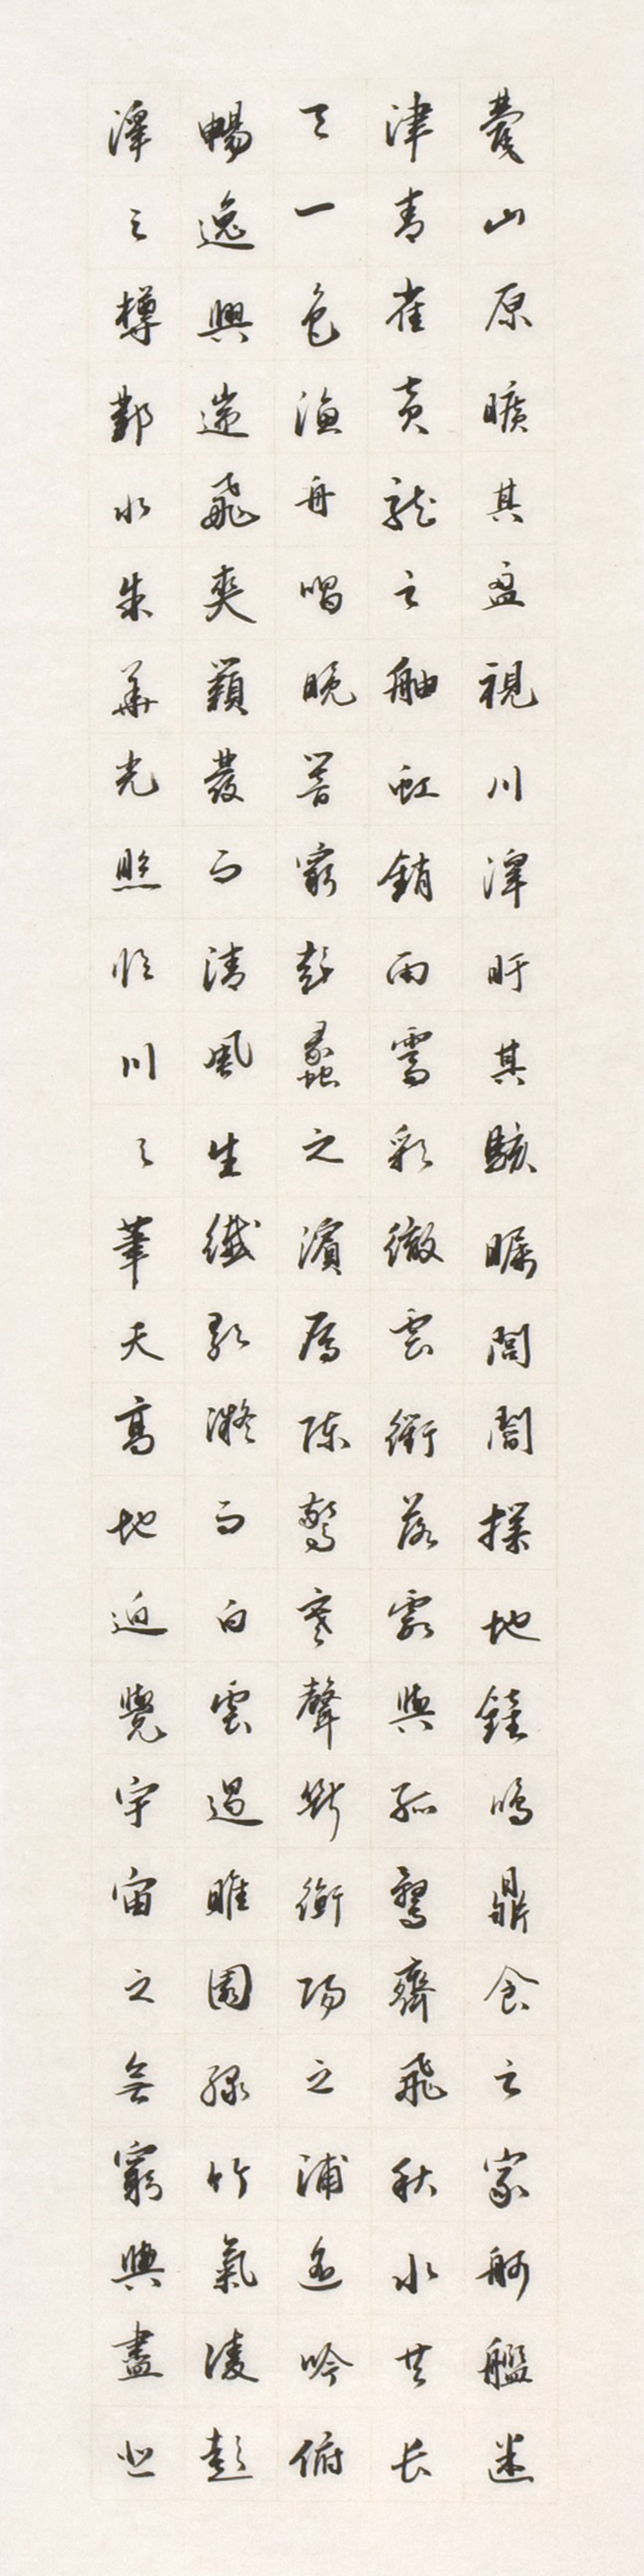 甍山原曠其盈視川澤盱其駭矚閭閻撲地鐘鳴鼎食之家舸艦迷
津青雀黃龍之舳虹銷雨霽彩徹雲衢落霞與孤鶩齊飛秋水共長
天一色漁舟唱晚響窮彭蠡之濱雁陣驚寒聲斷衡陽之浦遙吟俯
暢逸興遄飛爽籟發而清風生纖歌凝而白雲遏睢園綠竹氣淩彭
澤之樽鄴水朱華光照臨川之筆天高地迥覺宇宙之無窮興盡悲